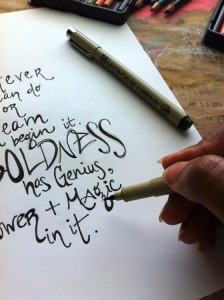 tever
can do
or
eam
begin it.
OLDNESS
has Genius,
ower + Magic
in it.